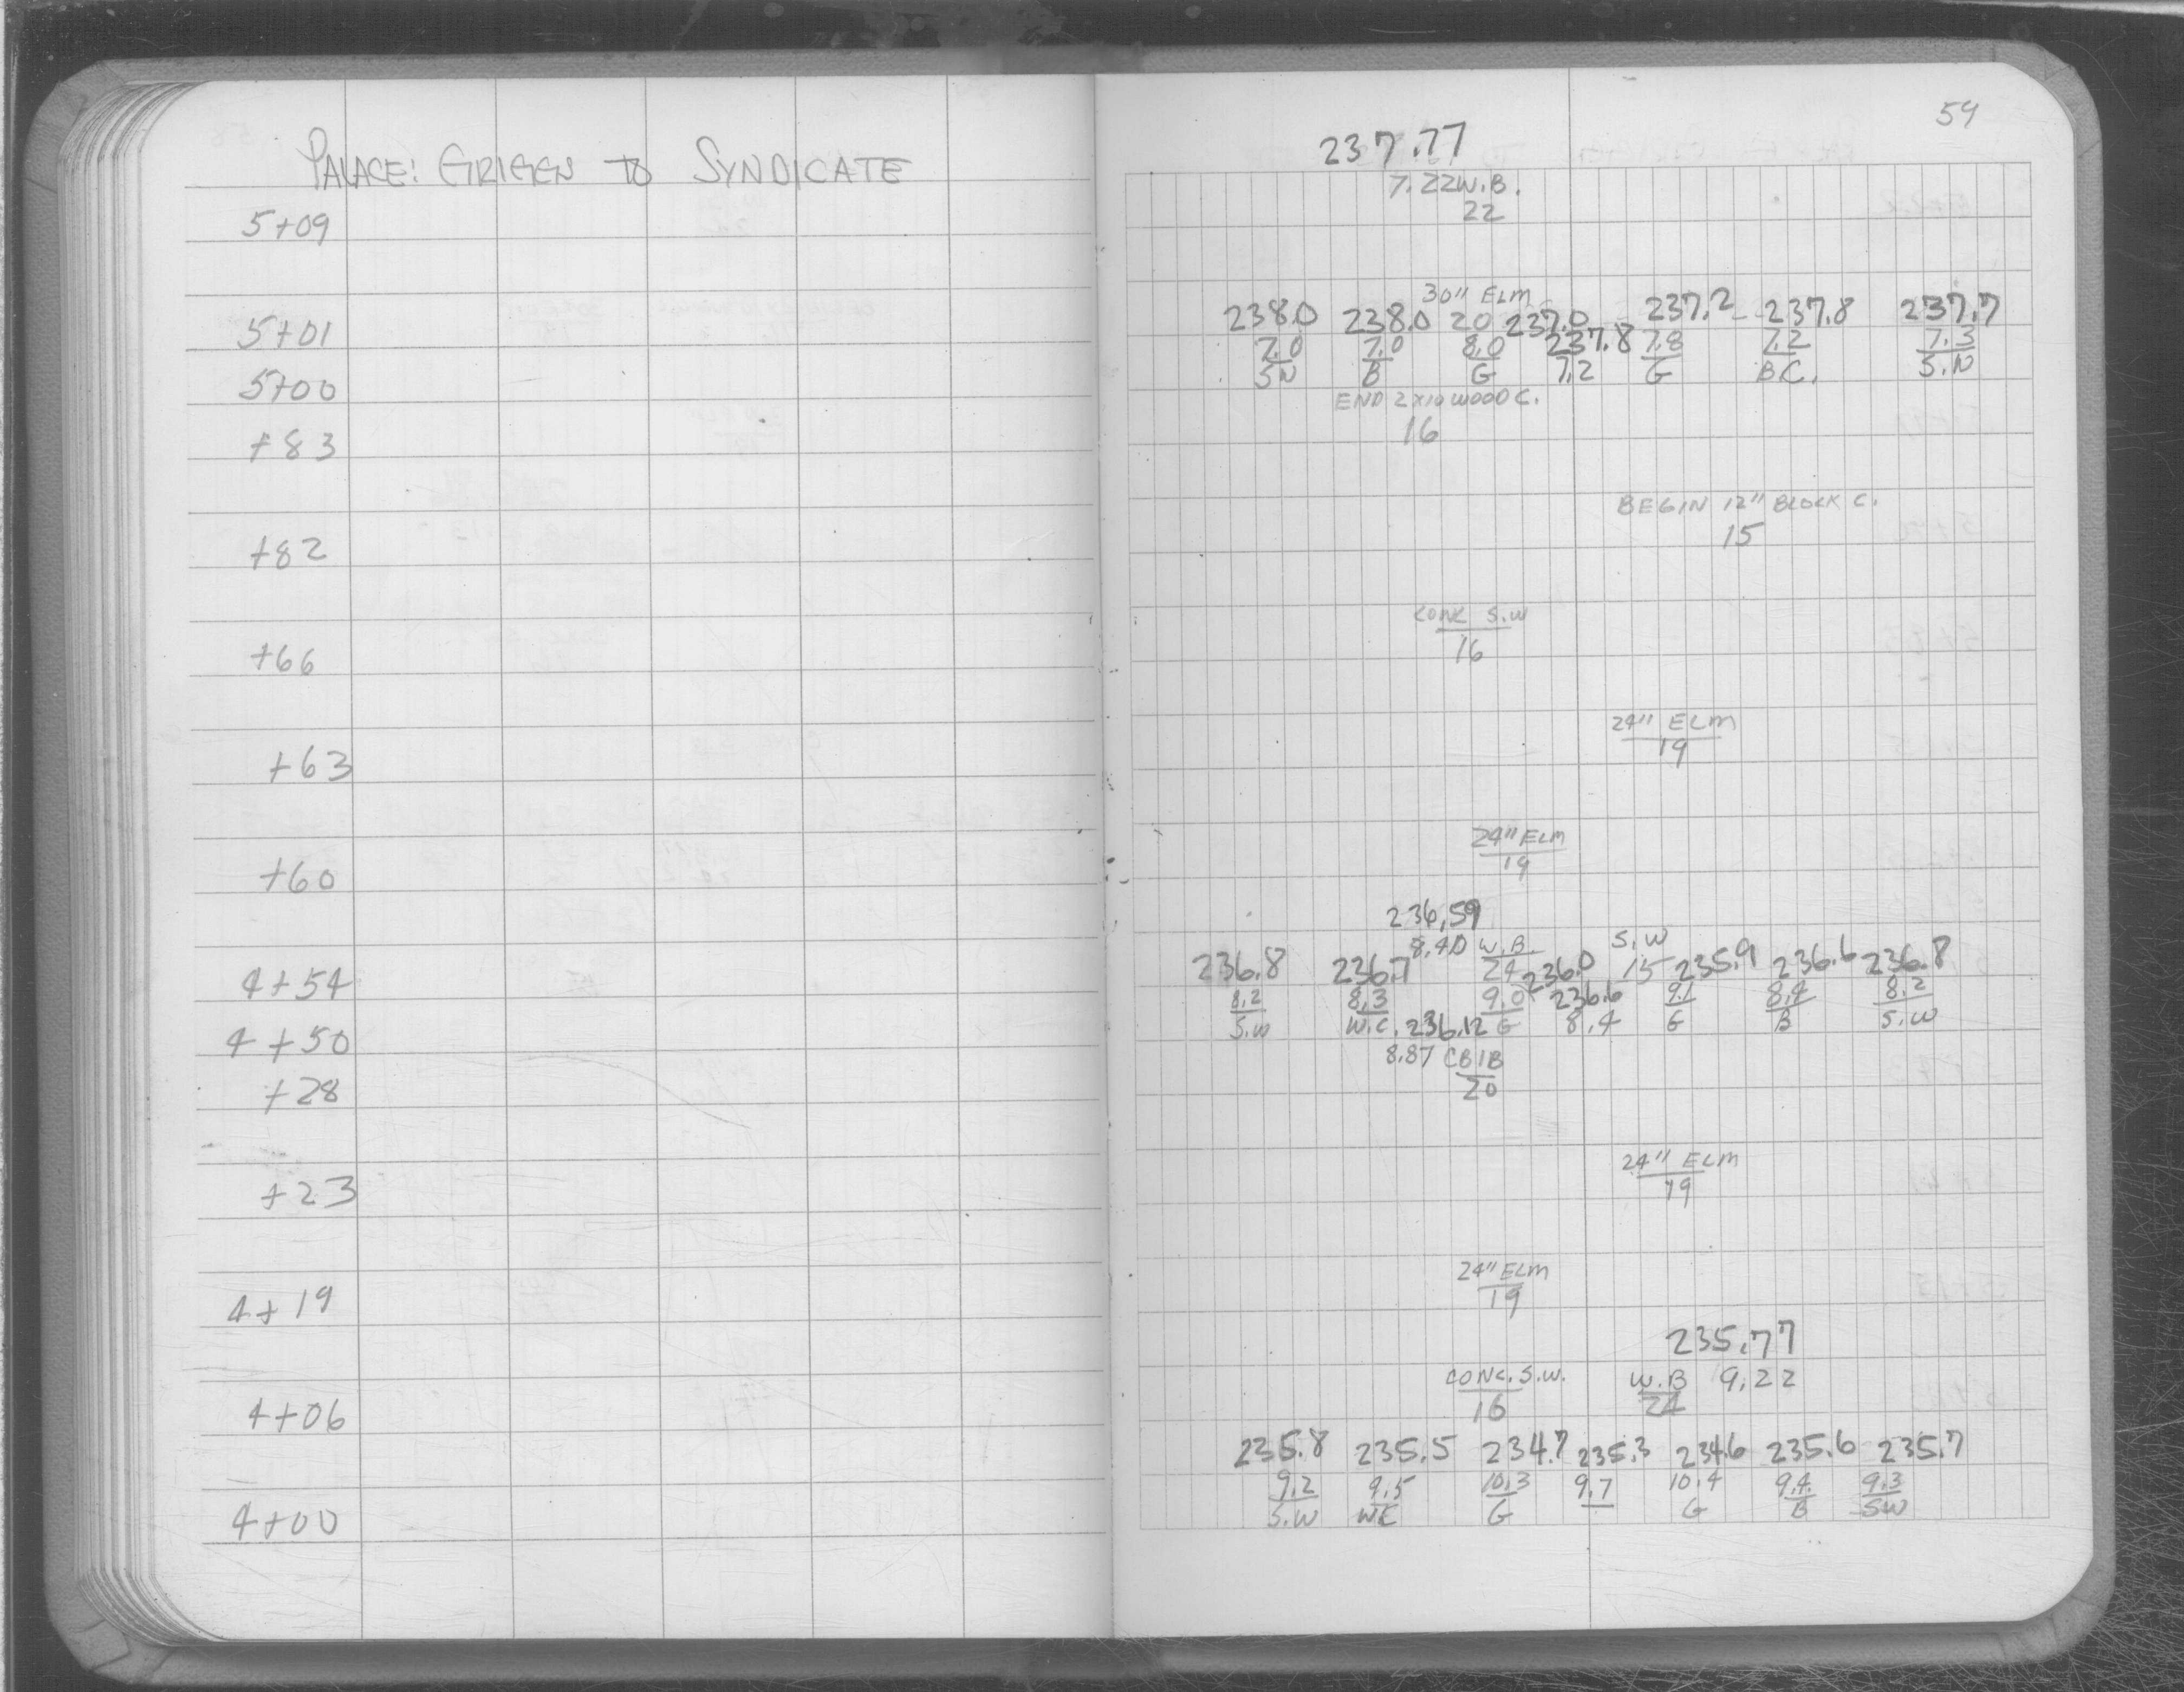 PALACE: GRIGGS TO SYNDICATE
5+09
5+01
5+00
+83
+82
+66
+63
+60
4+54
4+50
+28
+23
4+19
4+06
4+00
59
237.77
7.22 W.B.
22
30" ELM
238.0 238.0 20 237.0 237.2 237.8 237.7
7.0 7.0 8.0 237.8 7.8 7.2 7.3
S.W B G 7.2 G B.C. S.W
END 2x10 WOOD C.
16
BEGIN 12" BLOCK C.
15
CONC S.W
16
24" ELM
19
24" ELM
19
236.59
8.40 W.B. S.W
236.8 236.7 24 236.0 15 235.9 236.6 236.8
8.2 8.3 9.0 236.6 9.1 8.4 8.2
S.W W.C. 236.12 G 8.4 G B S.W
8.87 CBIB
20
24" ELM
19
24" ELM
19
235.77
CONC. S.W. W.B 9.22
16 24
235.8 235.5 234.7 235.3 234.6 235.6 235.7
9.2 9.5 10.3 9.7 10.4 9.4 9.3
S.W WC G G B SW